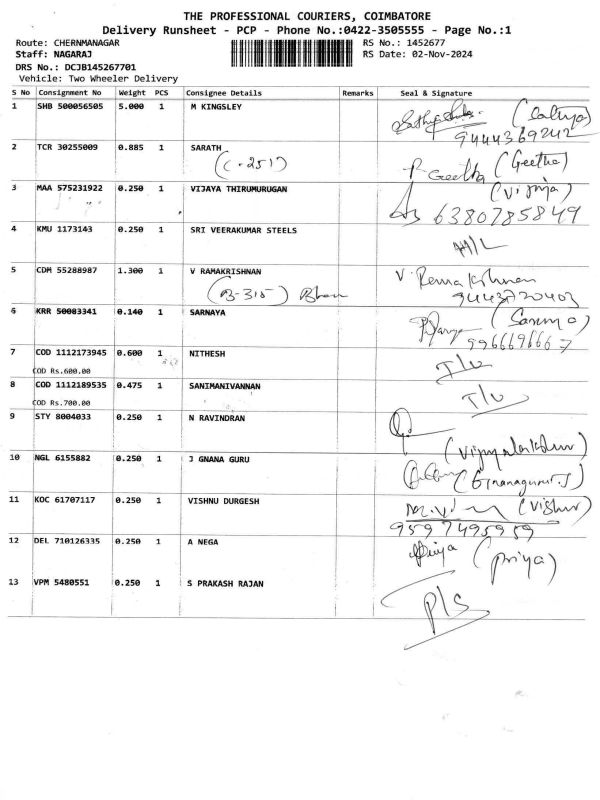 THE PROFESSIONAL COURIERS, COIMBATORE
Delivery Runsheet - PCP - Phone No.:0422-3505555 - Page No.:1
Route: CHERNMANAGAR RS No.: 1452677
Staff: NAGARAJ RS Date: 02-Nov-2024
DRS No.: DCJB145267701
Vehicle: Two Wheeler Delivery
S No Consignment No Weight PCS Consignee Details Remarks Seal & Signature
1 SHB 500056505 5.000 1 M KINGSLEY (Sathya)
9444369242
2 TCR 30255009 0.885 1 SARATH P. Geetha (Geetha)
(C-251)
3 MAA 575231922 0.250 1 VIJAYA THIRUMURUGAN (Vijaya)
6380785849
4 KMU 1173143 0.250 1 SRI VEERAKUMAR STEELS
5 CDM 55288987 1.300 1 V RAMAKRISHNAN V. Ramakrishnan
(B-315) 9443720403
6 KRR 50083341 0.140 1 SARNAYA
9966696667
7 COD 1112173945 0.600 1 NITHESH I/L
COD Rs.600.00
8 COD 1112189535 0.475 1 SANIMANIVANNAN I/L
COD Rs.700.00
9 STY 8004033 0.250 1 N RAVINDRAN
10 NGL 6155882 0.250 1 J GNANA GURU (Gnanaguru.J)
11 KOC 61707117 0.250 1 VISHNU DURGESH (Vishnu)
9597495959
12 DEL 710126335 0.250 1 A NEGA Priya (Priya)
13 VPM 5480551 0.250 1 S PRAKASH RAJAN P/S